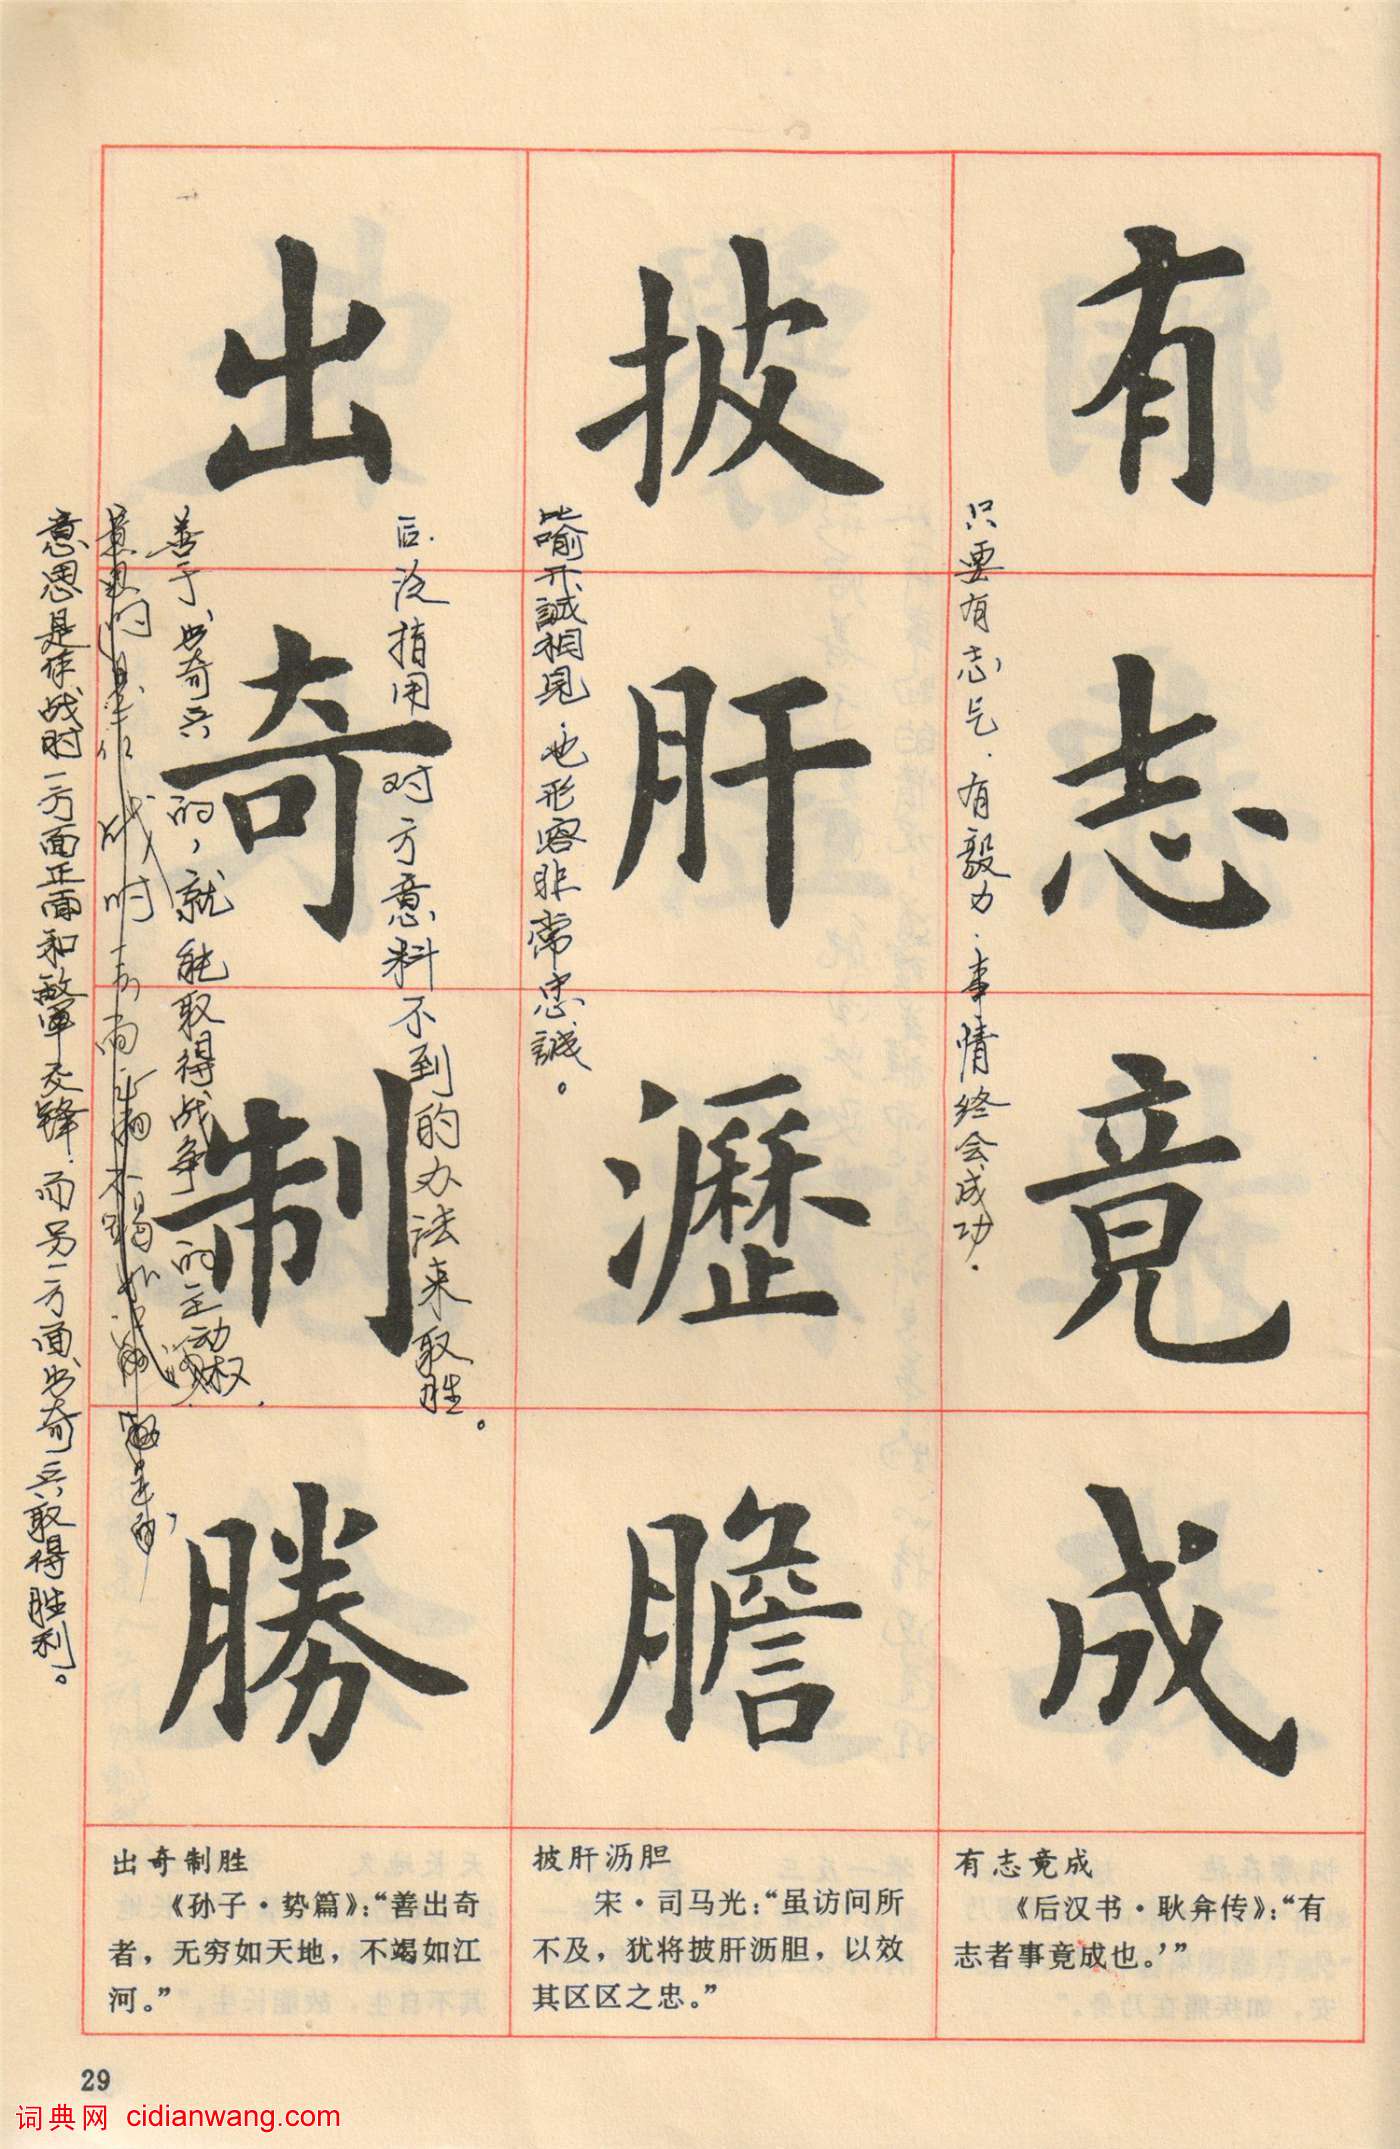 有志竟成
只要有志气.有毅力.事情终会成功.
披肝瀝膽
比喻开誠相見.也形容非常忠誠。
出奇制勝
后.泛指用对方意料不到的办法来取胜。
善于出奇兵的,就能取得战争的主动权.
意思是作战时一方面正面和敌軍交锋.而另一方面出奇兵取得胜利。
出奇制胜
《孙子·势篇》：“善出奇
者，无穷如天地，不竭如江
河。”
披肝沥胆
宋·司马光：“虽访问所
不及，犹将披肝沥胆，以效
其区区之忠。”
有志竟成
《后汉书·耿弇传》：“有
志者事竟成也。’”
29
词典网 cidianwang.com